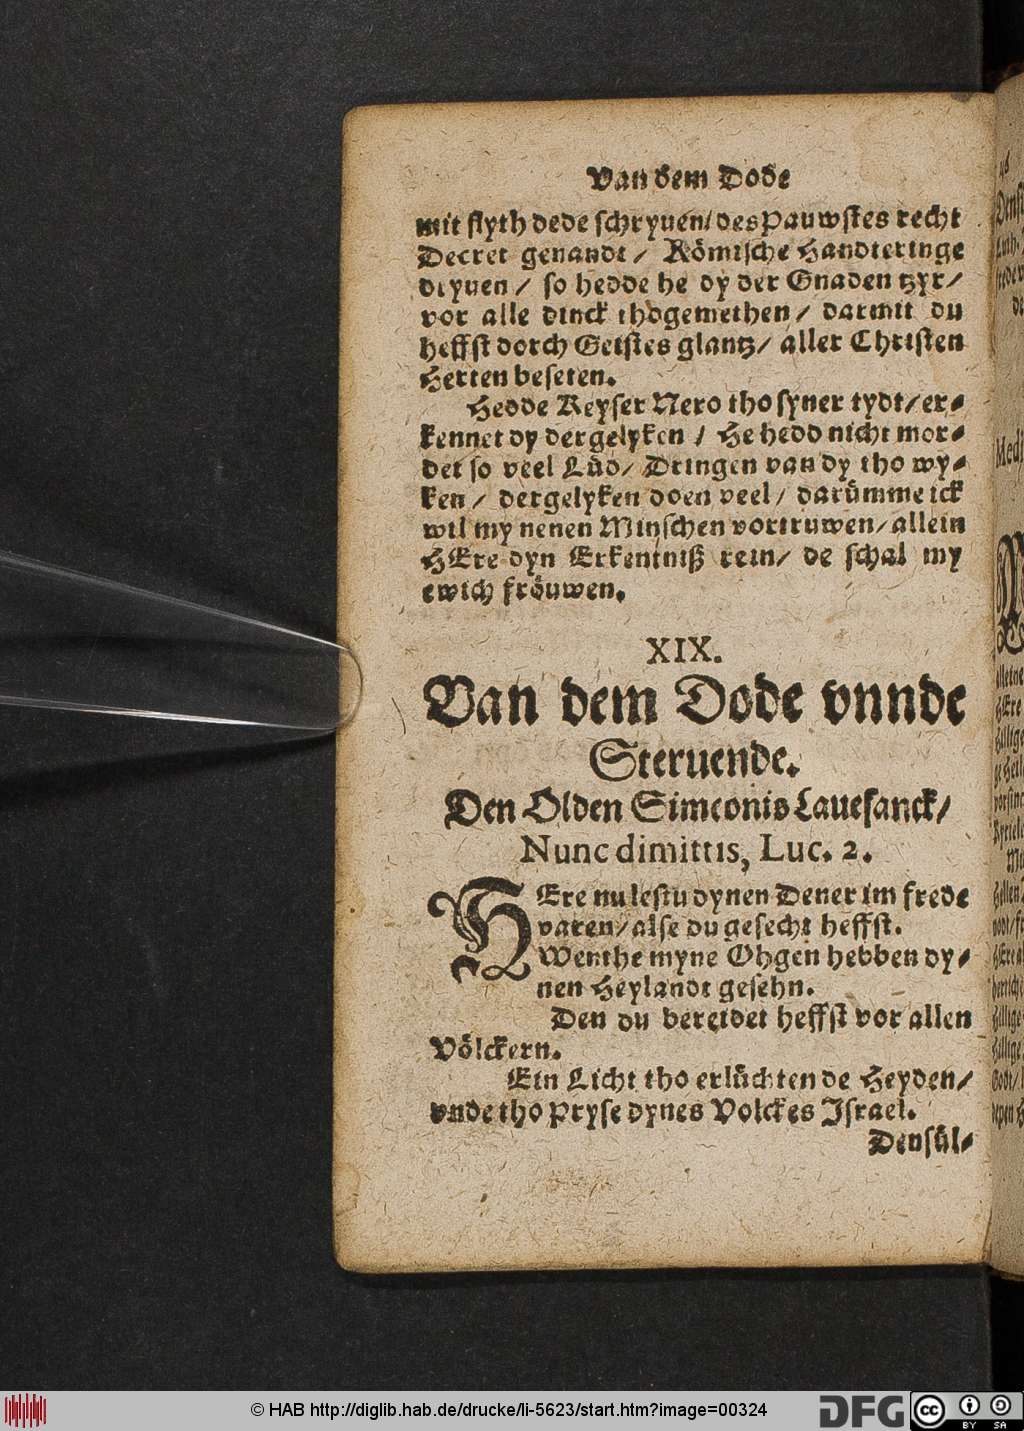 Van dem Dode
mit flyth dede schryuen/ des Pauwstes recht
Decret genandt / Römische Handteringe
dryuen / so hedde he dy der Gnaden tzyr /
vor alle dinck thogemethen / darmit du
heffst dorch Geistes glantz / aller Christen
Herten beseten.
Hedde Keyser Nero tho syner tydt / er-
kennet dy dergelyken / He hedd nicht mor-
det so veel Lüd / Dringen van dy tho wy-
ken / dergelyken doen veel / darümme ick
wil my nenen Minschen vortruwen / allein
HEre dyn Erkentniß rein / de schal my
ewich fröuwen.
XIX.
Van dem Dode vnnde
Steruende.
Den Olden Simeonis Lauesanck /
Nunc dimittis, Luc. 2.
HEre nu lestu dynen Dener im frede
varen / alse du gesecht heffst.
Wenthe myne Ohgen hebben dy-
nen Heylandt gesehn.
Den du bereidet heffst vor allen
Völckern.
Ein Licht tho erlüchten de Heyden /
vnde tho pryse dynes Volckes Israel.
Densül-
© HAB http://diglib.hab.de/drucke/li-5623/start.htm?image=00324
DFG
cc
BY SA